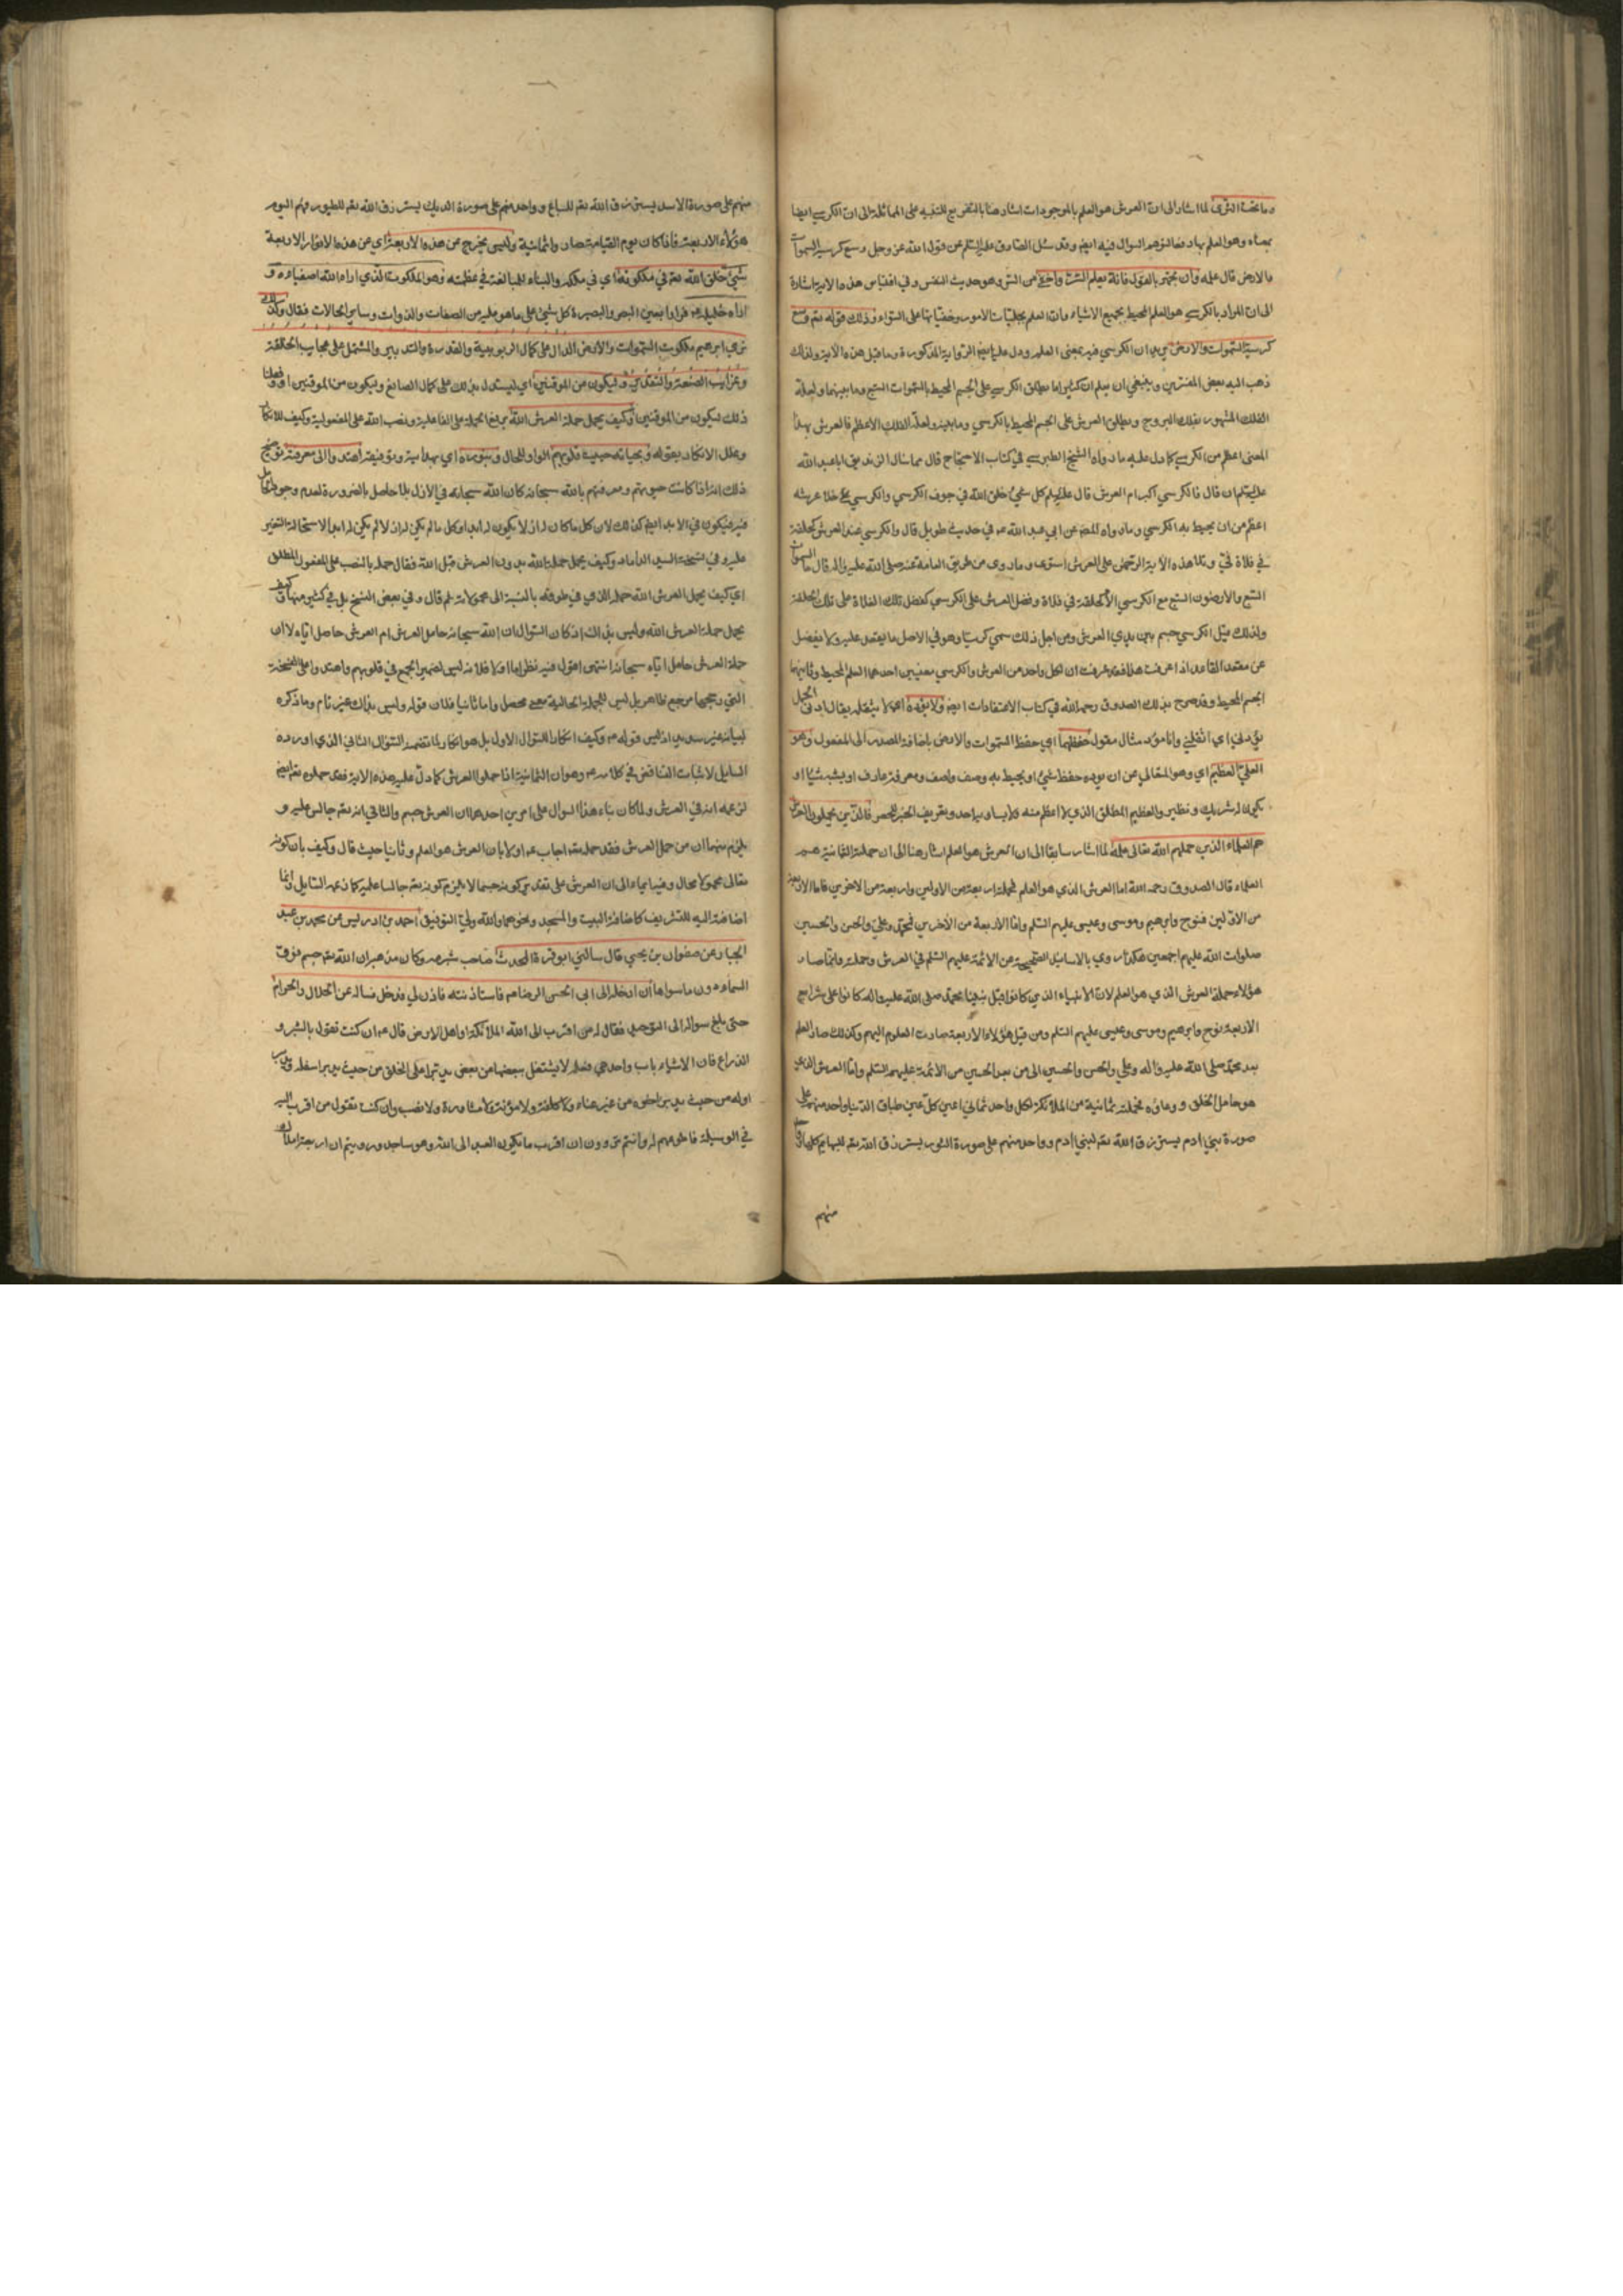 وما تحت الثرى لما اشار الى ان العرش هو العلم بالموجودات اشار هنا بالتفريع للتنبيه على المماثلة الى ان الكرسي ايضا
بمعناه وهو العلم بها دفعا لتوهم السوال فيه ايضا وقد سئل الصادق عليه السلم عن قول الله عز وجل وسع كرسيه السموات
والارض قال علمه وان تجهر بالقول فانه يعلم السر واخفى من السر وهو حديث النفس وفي اقتباس هذه الاية اشارة
الى ان المراد بالكرسي هو العلم المحيط بجميع الاشياء وان العلم بجليات الامور وخفياتها على السواء وذلك قوله تعم وسع
كرسيه السموات والارض يريد ان الكرسي فيه بمعنى العلم ودل عليه ايضا الرواية المذكورة وما قبل هذه الاية ولذلك
ذهب اليه بعض المفسرين وينبغي ان يعلم ان كثيرا ما يطلق الكرسي على الجسم المحيط بالسموات السبع وما بينهما ولعله
الفلك المشهور بفلك البروج ويطلق العرش على الجسم المحيط بالكرسي وما بينه ولعله الفلك الاعظم فالعرش بهذا
المعنى اعظم من الكرسي كما دل عليه ما رواه الشيخ الطبرسي في كتاب الاحتجاج قال مما سال الزنديق ابا عبد الله
عليه السلم ان قال فالكرسي اكبر ام العرش قال عليه السلم كل شيء خلق الله في جوف الكرسي والكرسي خلا عرشه
اعظم من ان يحيط به الكرسي وما رواه المص عن ابي عبد الله عم في حديث طويل قال والكرسي عند العرش كحلقة
في فلاة قي وتلا هذه الاية الرحمن على العرش استوى وما روى من طريق العامة عنه صلى الله عليه واله قال ما السموات
السبع والارضون السبع مع الكرسي الا كحلقة في فلاة وفضل العرش على الكرسي كفضل تلك الفلاة على تلك الحلقة
ولذلك قيل الكرسي جسم بين يدي العرش ومن اجل ذلك سمي كرسيا وهو في الاصل ما يقعد عليه ولا يفضل
عن مقعد القاعد اذا عرفت هذا فقد عرفت ان لكل واحد من العرش والكرسي معنيين احدهما العلم المحيط وثانيهما
الجسم المحيط وقد صرح بذلك الصدوق رحمه الله في كتاب الاعتقادات ايضا ولا يؤده اي لا يثقله يقال ادني الحمل
يؤدني اي اثقلني وانا مؤد مثال مقول حفظهما اي حفظ السموات والارض باضافة المصدر الى المفعول وهو
العلي العظيم اي وهو المتعالي عن ان يؤده حفظ شيء او يحيط به وصف واصف ومعرفة عارف او يشبه شيئا او
يكون له شريك ونظير والعظيم المطلق الذي لا اعظم منه ولا يساويه احد وتعريف الخبر للحصر فالذين يحملون العرش
هم العلماء الذين حملهم الله تعالى علمه لما اشار سابقا الى ان العرش هو العلم اشار هنا الى ان حملته الثمانية هم
العلماء قال الصدوق رحمه الله اما العرش الذي هو العلم فحملته اربعة من الاولين واربعة من الاخرين فاما الاربعة
من الاولين فنوح وابرهيم وموسى وعيسى عليهم السلم واما الاربعة من الاخرين فمحمد وعلي والحسن والحسين
صلوات الله عليهم اجمعين هكذا روي بالاسانيد الصحيحة عن الائمة عليهم السلم في العرش وحملته وانما صار
هؤلاء حملة العرش الذي هو العلم لان الانبياء الذين كانوا قبل نبينا محمد صلى الله عليه واله كانوا على شرايع
الاربعة نوح وابرهيم وموسى وعيسى عليهم السلم ومن قبل هؤلاء الاربعة صارت العلوم اليهم وكذلك صار العلم
بعد محمد صلى الله عليه واله وعلي والحسن والحسين الى من بعد الحسين من الائمة عليهم السلم واما العرش الذي
هو حامل الخلق فحملته ثمانية من الملائكة لكل واحد ثماني اعين كل عين طباق الدنيا واحد منهم على
صورة بني ادم يسترزق الله تعم لبني ادم وواحد منهم على صورة الثور يسترزق الله تعم للبهائم كلها
منهم
منهم على صورة الاسد يسترزق الله تعم للسباع وواحد منهم على صورة الديك يسترزق الله تعم للطيور فهم اليوم
هؤلاء الاربعة فاذا كان يوم القيامة صاروا ثمانية وليس يخرج عن هذه الاربعة اي عن هذه الانوار الاربعة
شيء خلق الله تعم في ملكوته اي في ملكه والتاء للمبالغة في عظمته وهو الملكوت الذي اراه الله اصفياءه و
اراه خليله عم فراوا بعين البصر والبصيرة كل شيء على ما هو عليه من الصفات والذوات وساير الحالات فقال وكذلك
نري ابرهيم ملكوت السموات والارض الدال على كمال الربوبية والقدرة والتدبير والمشتمل على عجايب الخلقة
وغرايب الصنعة والتقدير وليكون من الموقنين اي ليستدل بذلك على كمال الصانع وليكون من الموقنين او وفعلنا
ذلك ليكون من الموقنين وكيف يحمل حملة العرش الله برفع الحملة على الفاعلية ونصب الله على المفعولية وكيف للانكار
وعلل الانكار بقوله وبحياته حييت قلوبهم الواو للحال وبنوره اي بهدايته وتوفيقه اهتدوا الى معرفته توضيح
ذلك انه اذا كانت حيوتهم ومعرفتهم بالله سبحانه كان الله سبحانه في الازل بلا حامل بالضرورة لعدم وجود الحامل
فيه فيكون في الابد ايضا كذلك لان كل ما كان له ازلا يكون له ابدا وكل ما لم يكن له ازلا لم يكن له ابدا لاستحالة التغير
عليه وفي نسخة السيد الداماد وكيف يحمل حملة الله بدون العرش قبل الله فقال حمله بالنصب على المفعول المطلق
اي كيف يحمل العرش الله حمله الذي في طوقه بالنسبة الى محمولاته ثم قال وفي بعض النسخ بل في كثير منها وكيف
يحمل حملة العرش الله وليس بذلك اذ كان السوال ان الله سبحانه حامل العرش ام العرش حامل اياه لا ان
حملة العرش حامل اياه سبحانه انتهى اقول فيه نظر اما اولا فلانه ليس لضمير الجمع في قلوبهم واهتدوا على النسخة
التي رجحها مرجع ظاهر بل ليس للجملة الحالية معنى محصل واما ثانيا فلان قوله وليس بذلك غير تام وما ذكره
لبيانه غير سديد اذ ليس قوله عم وكيف انكارا للسوال الاول بل هو انكار لما تضمنه السوال الثاني الذي اورده
السايل لاثبات التناقض في كلامه عم وهو ان الثمانية اذا حملوا العرش كما دل عليه هذه الاية فقد حملوه تعم ايضا
لزعمه انه في العرش ولما كان بناء هذا السوال على امرين احدهما ان العرش جسم والثاني انه تعم جالس عليه و
يلزم منهما ان من حمل العرش فقد حمله تعم اجاب عم اولا بان العرش هو العلم وثانيا حيث قال وكيف بان كونه
تعالى محمولا محال وفيه ايماء الى ان العرش على تقدير كونه جسما لا يلزم كونه تعم جالسا عليه كما زعمه السايل وانما
اضافته اليه للتشريف كاضافة البيت والمسجد ونحوهما والله ولي التوفيق احمد بن ادريس عن محمد بن عبد
الجبار عن صفوان بن يحيى قال سالني ابو قرة المحدث صاحب شبرمه وكان من مذهبه ان الله تعم جسم فوق
السماء دون ما سواها ان ادخله الى ابي الحسن الرضا عم فاستاذنته فاذن لي فدخل فساله عن الحلال والحرام
حتى بلغ سواله الى التوحيد فقال له من اقرب الى الله الملائكة او اهل الارض قال عم ان كنت تقول بالشبر و
الذراع فان الاشياء باب واحد هي فعله لا يشتغل ببعضها عن بعض يدبر اعلى الخلق من حيث يدبر اسفله ويدبر
اوله من حيث يدبر اخره من غير عناء ولا كلفة ولا مؤنة ولا مشاورة ولا نصب وان كنت تقول من اقرب اليه
في الوسيلة فاطوعهم له وانتم تروون ان اقرب ما يكون العبد الى الله وهو ساجد ورويتم ان اربعة املاك